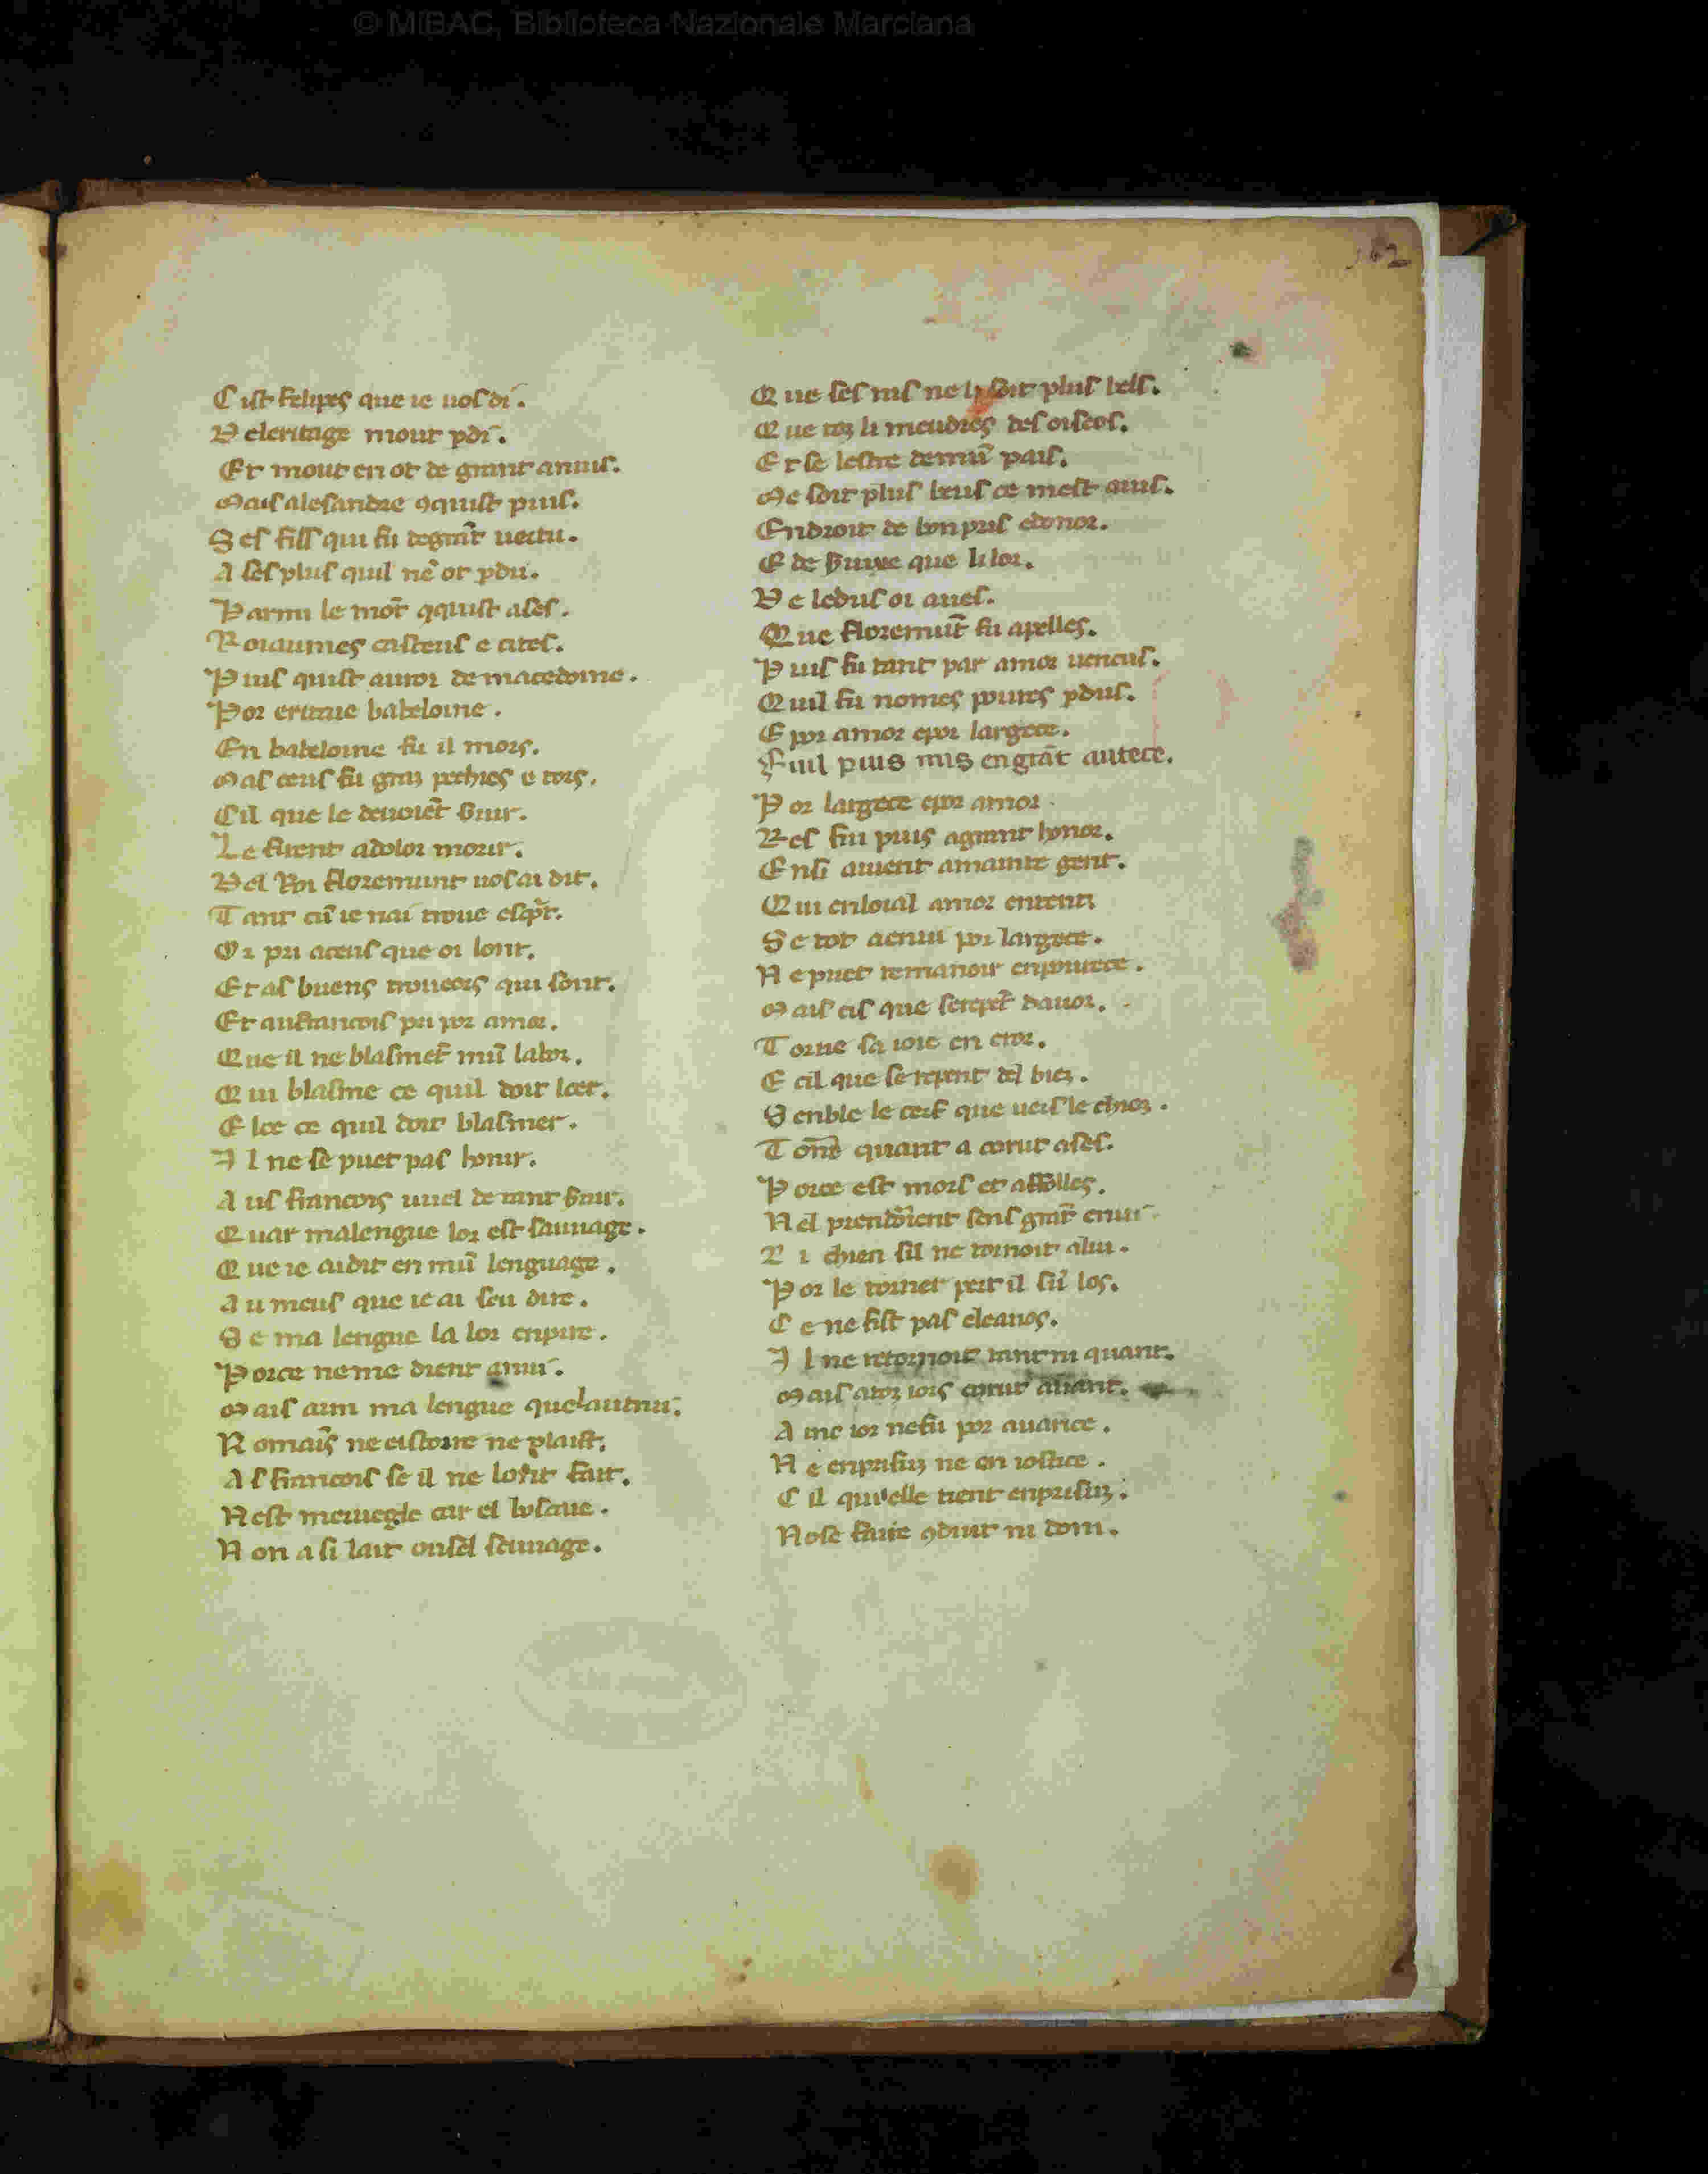 © MiBAC, Biblioteca Nazionale Marciana
162
C ist felipes que ie uos di.
D eleritage mout pdi.
Et mout en ot de grant annui.
Mais alesandre 9quist puis.
S es fils qui fu de grāt uertu.
A ses plus quil nē ot pdu.
Parmi le mōt 9quist ases.
Roiaumes casteus e cites.
Puis quist auoir de macedoine.
Por en babeloine.
En babeloine fu il mors.
Mas ceus fu granz pechies e tors.
Cil que le deuoiēt seruir.
Le firent a dolor morir.
Del Roi floremunt uos ai dit.
T ant cū ie nai troue escpt.
Or pri a ceus que oi lont.
Et as buens troueors qui sont.
Et au francois pri por amor.
Que il ne blasmēt mū labor.
Qui blasme ce quil doit loer.
E loe ce quil doit blasmer.
Il ne se puet pas honir.
A us francois uuel de tant seruir.
Quar ma lengue lor est sauuage.
Que ie ai dit en mū lenguage.
Au meus que ie ai seu dire.
Se ma lengue la lor enpire.
Por ce ne me dient anui.
Mais aim ma lengue que lautrui.
Romaīs ne estoire ne plaist.
As francois se il ne lont fait.
Nest merueglie car el boscaie.
Non a si lait oisel sauuage.
Que ses nis ne li soit plus bels.
Que toz li meudres des oiseos.
Et se lestre de mū pais.
Me soit plus beus ce mest auis.
Endroit de bon pris e donor.
E de seruixe que li lor.
De le dus oi aues.
Que floremūt fu apelles.
Puis fu tant par amor uencus.
Quil fu nomes poures pdus.
E por amor e por largece.
Fu il puis mis en grāt autece.
Por largece e por amor
Res fu puis a grant honor.
Ensi auient a mainte gent.
Qui en loial amor entent
Se tot auenu por largece.
Ne puet remanoir en pourece.
Mais cis que se repēt dauoir.
Torne sa ioie en error.
E cil que se repent del biez.
Senble le cerf que ueis le chiez.
T orne quant a corut ases.
Por ce est mors et affolles.
Nel prendroient sens grāt enui
Li chien sil ne tornoit a lui.
Por le torner pert il sū los.
Ce ne fist pas cleanos.
Il ne retornoit tant ni quant.
Mais a toz iors corut auant.
A inc ior ne fu por auarice.
Ne en prisuz ne en iostice.
Cil quielle tient en prisuz.
Nose faire 9duit ni dom.